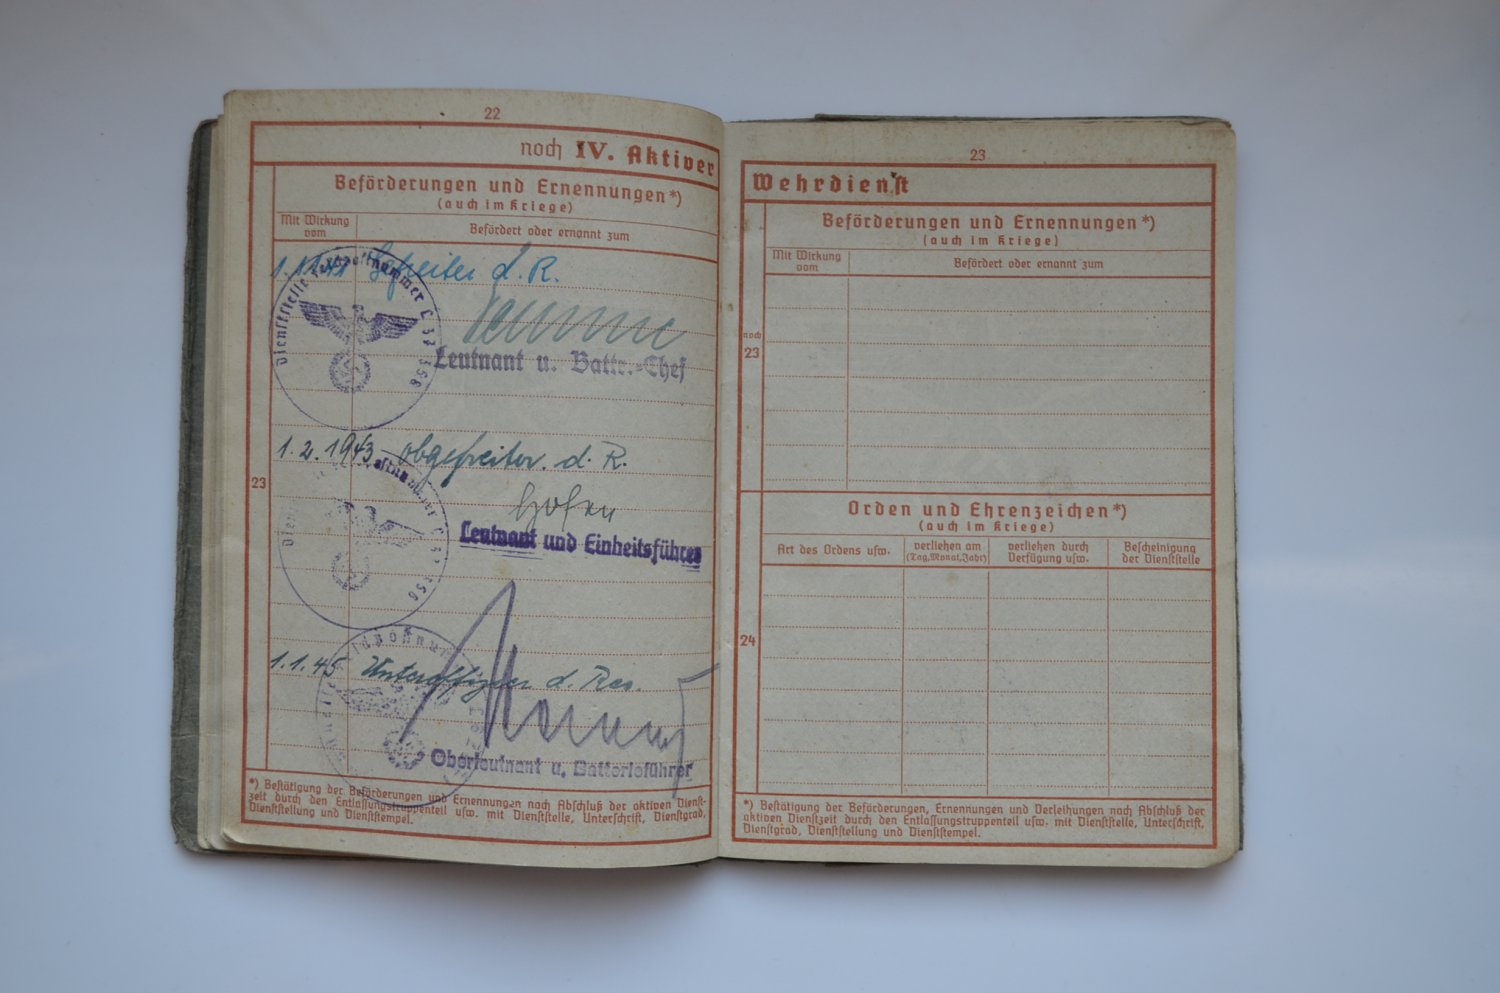 22
noch IV. Aktiver
Beförderungen und Ernennungen*)
(auch im Kriege)
Mit Wirkung vom
Befördert oder ernannt zum
Gefreiter d. R.
Dienststelle Feldpostnummer L 37 356
Leutnant u. Battr.-Chef
1.2.1943 Obgefreiter. d. R.
Leutnant und Einheitsführer
23
1.1.45 Unteroffizier d. Res.
Oberleutnant u. Batterieführer
*) Bestätigung der Beförderungen und Ernennungen nach Abschluß der aktiven Dienst-
zeit durch den Entlassungstruppenteil usw. mit Dienststelle, Unterschrift, Dienstgrad,
Dienststellung und Dienststempel.
23
Wehrdienst
Beförderungen und Ernennungen*)
(auch im Kriege)
Mit Wirkung vom
Befördert oder ernannt zum
noch
23
Orden und Ehrenzeichen*)
(auch im Kriege)
Art des Ordens usw.
verliehen am
(Tag, Monat, Jahr)
verliehen durch
Verfügung usw.
Bescheinigung
der Dienststelle
24
*) Bestätigung der Beförderungen, Ernennungen und Verleihungen nach Abschluß der
aktiven Dienstzeit durch den Entlassungstruppenteil usw. mit Dienststelle, Unterschrift,
Dienstgrad, Dienststellung und Dienststempel.